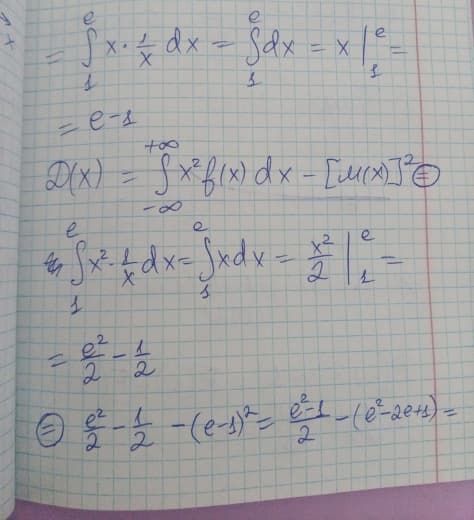 = ∫₁ᵉ x · 1/x dx = ∫₁ᵉ dx = x |₁ᵉ =
= e-1
D(x) = ∫₋∞⁺∞ x² f(x) dx - [M(x)]² ⊜
∫₁ᵉ x² · 1/x dx = ∫₁ᵉ x dx = x²/2 |₁ᵉ =
= e²/2 - 1/2
⊜ e²/2 - 1/2 - (e-1)² = e²-1/2 - (e²-2e+1) =